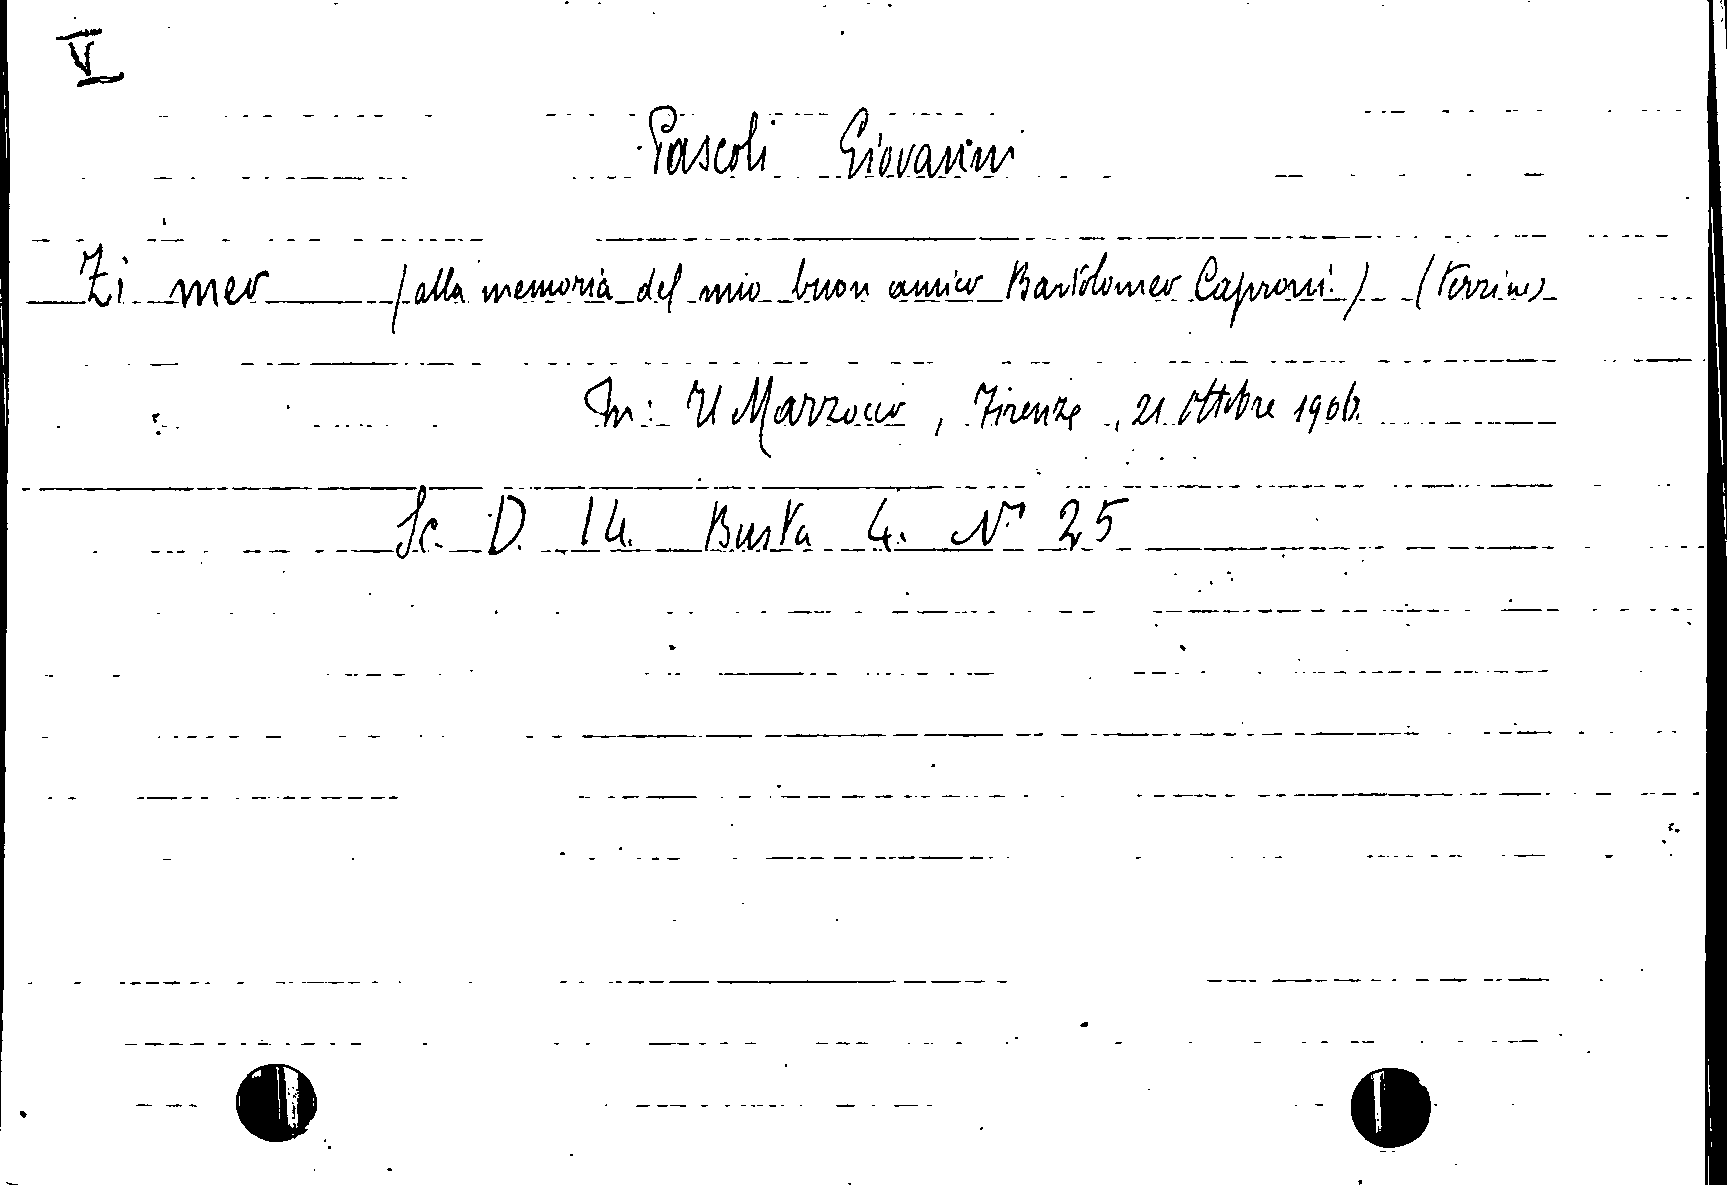 V
Pascoli Giovanni
Zi meo (alla memoria del mio buon amico Bartolomeo Caproni.) (terzine)
In: Il Marzocco, Firenze, 21 Ottobre 1906.
Sc. D. 14. Busta 4. N° 25